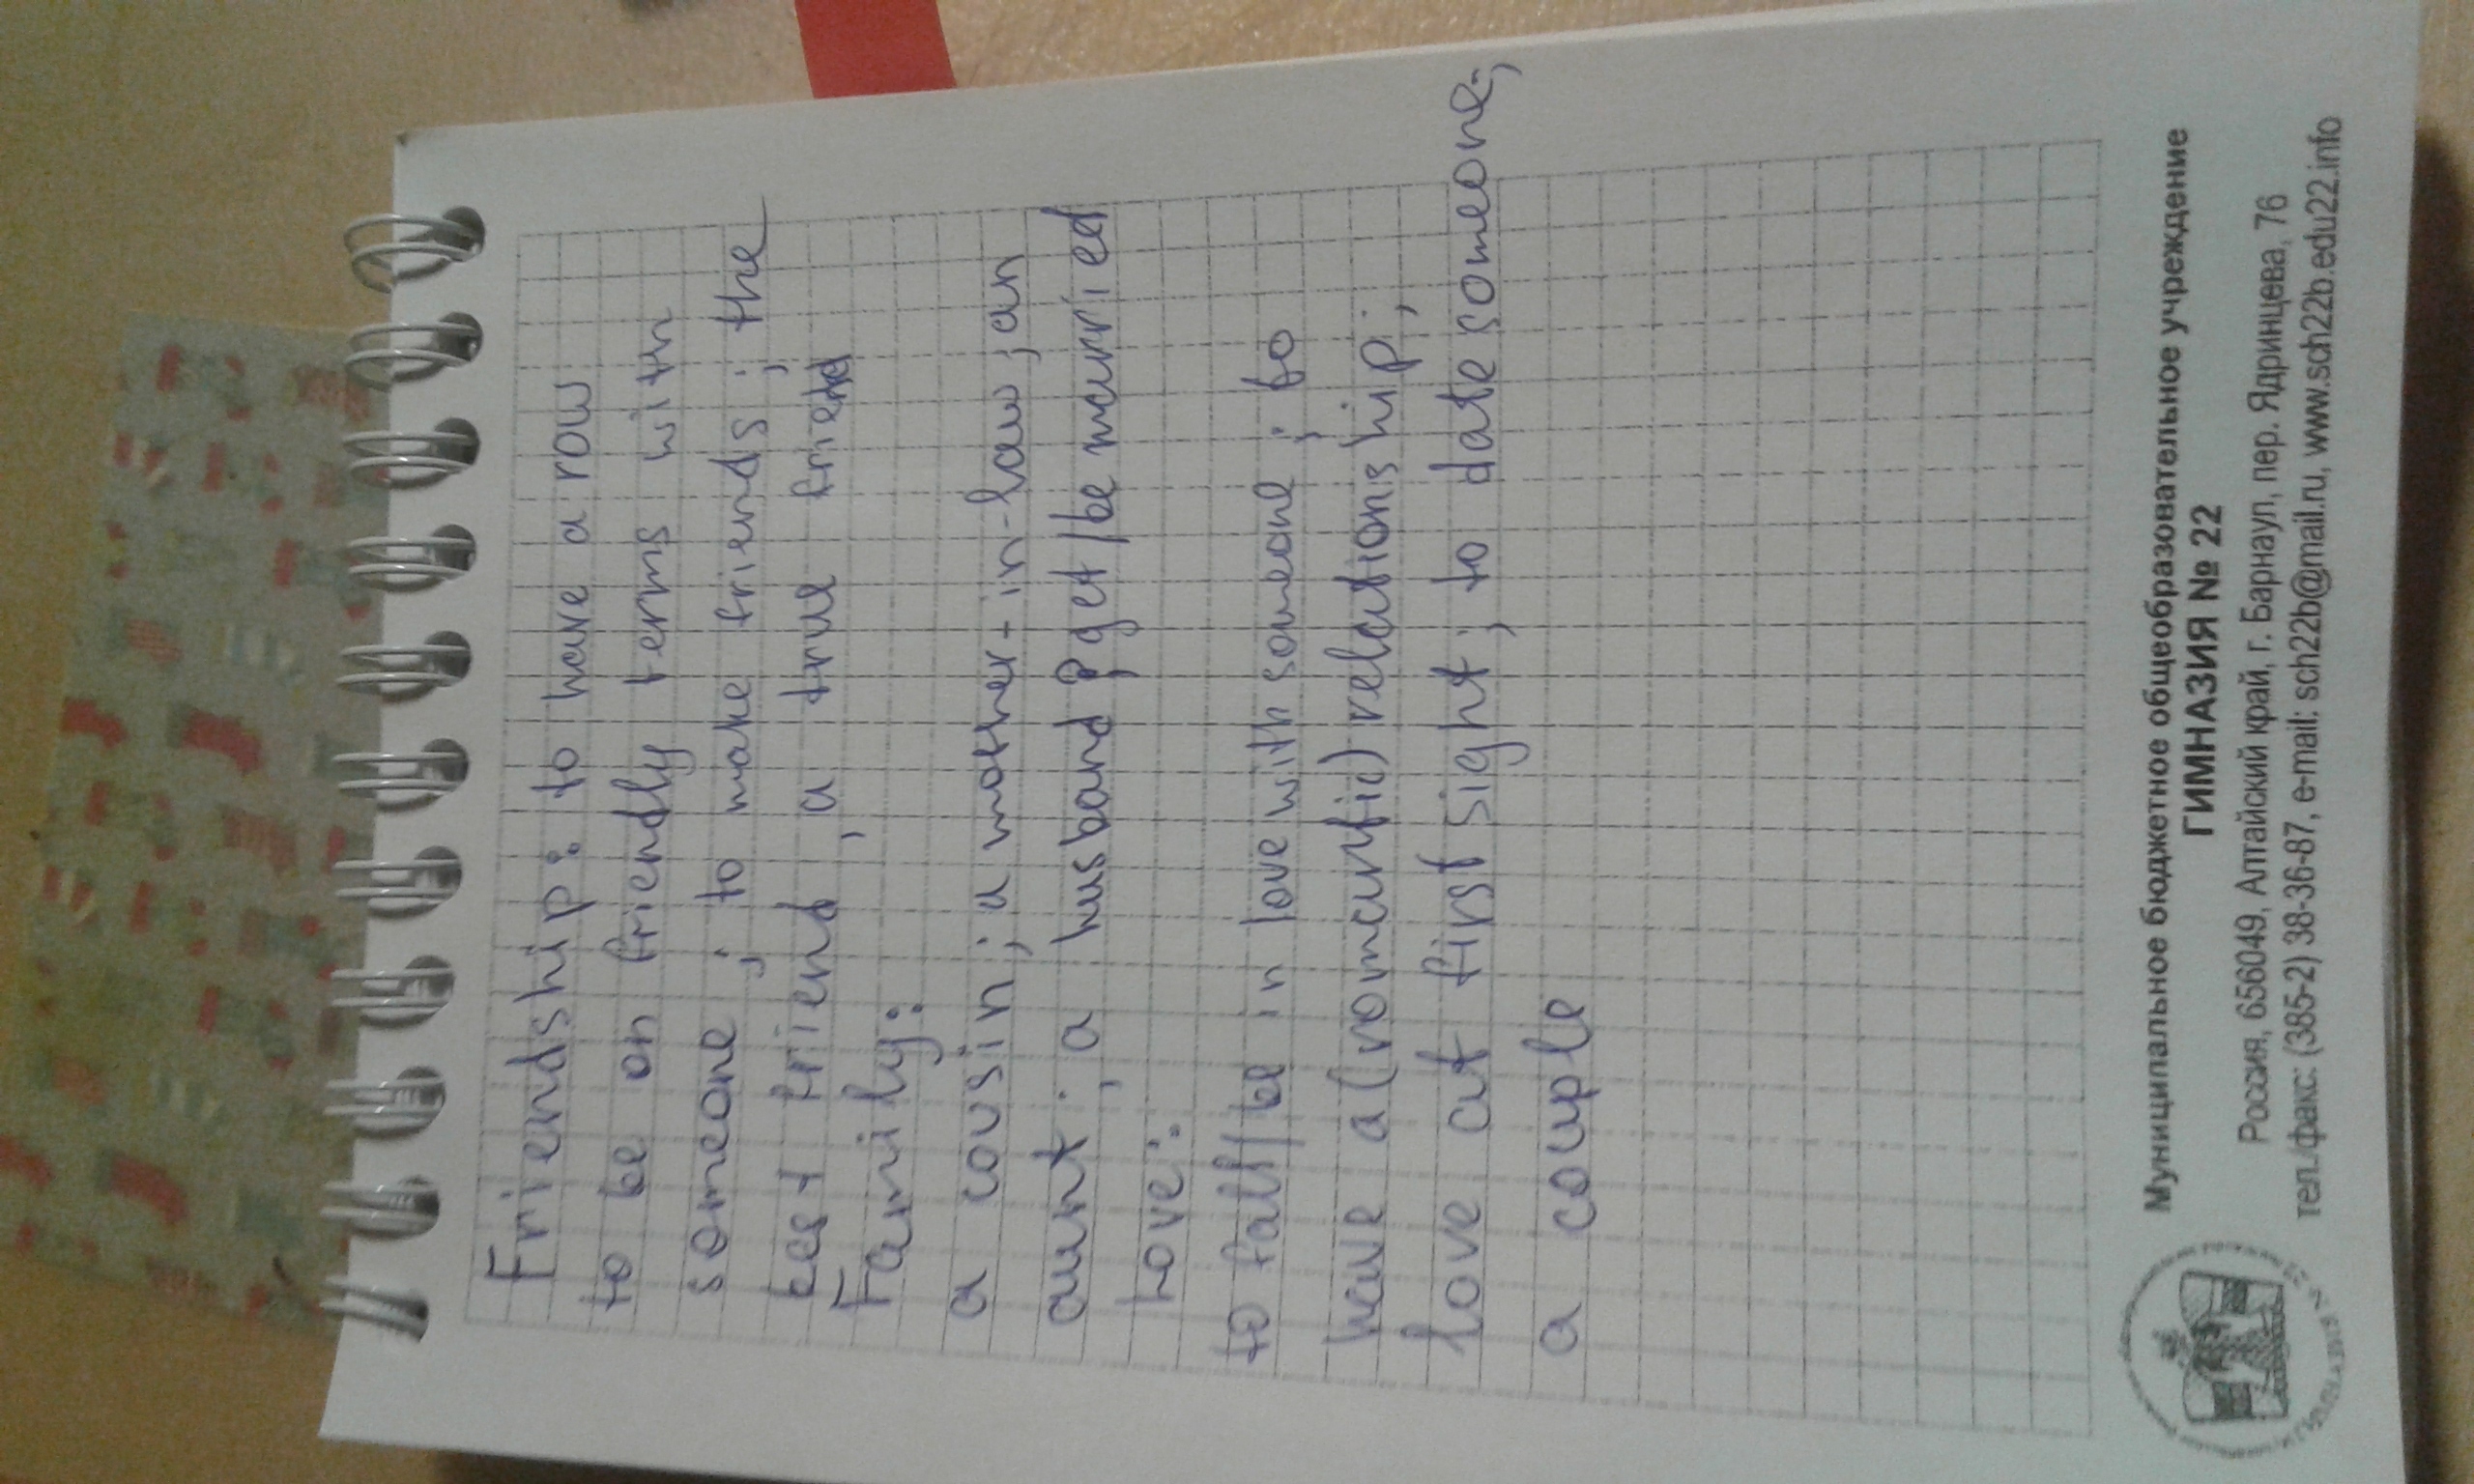 Friendship: to have a row
to be on friendly terms with
someone; to make friends; the
best friend, a true friend
Family:
a cousin; a mother-in-law; an
aunt; a husband; get/be married
Love:
to fall/be in love with someone; to
have a (romantic) relationship;
love at first sight; to date someone;
a couple
Муниципальное бюджетное общеобразовательное учреждение
ГИМНАЗИЯ № 22
Россия, 656049, Алтайский край, г. Барнаул, пер. Ядринцева, 76
тел./факс: (385-2) 38-36-87, e-mail: sch22b@mail.ru, www.sch22b.edu22.info